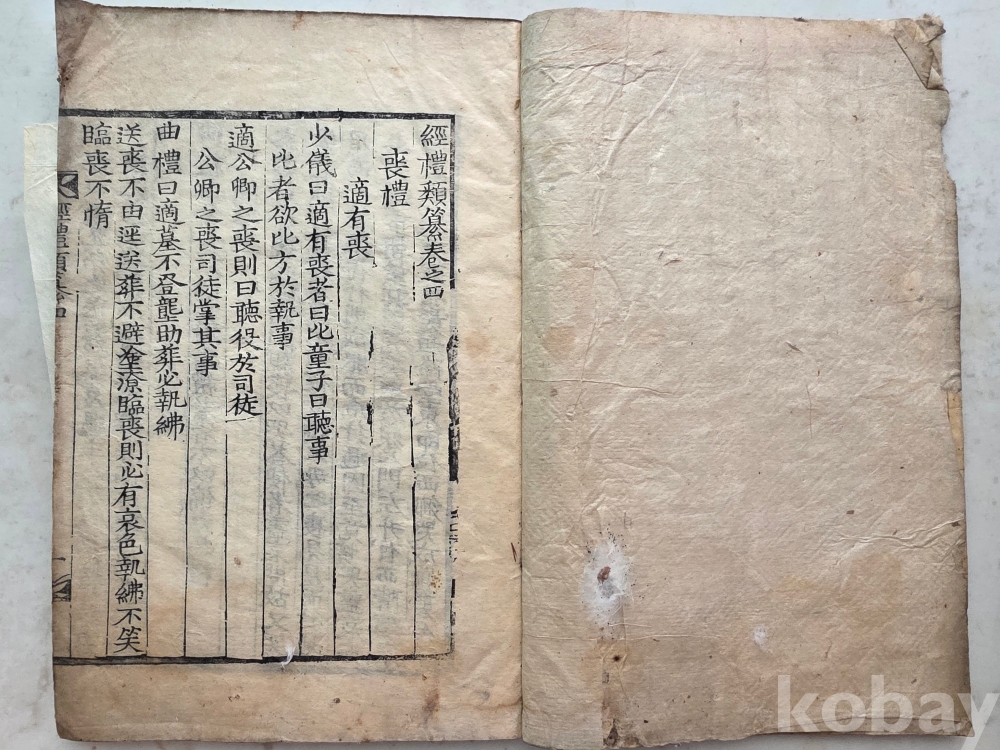 經禮類纂卷之四
喪禮
適有喪
少儀曰適有喪者曰比童子曰聽事
比者欲比方於執事
適公卿之喪則曰聽役於司徒
公卿之喪司徒掌其事
曲禮曰適墓不登壟助葬必執紼
送喪不由逕送葬不避塗潦臨喪則必有哀色執紼不笑
臨喪不惰
經禮類纂卷四
一
kobay